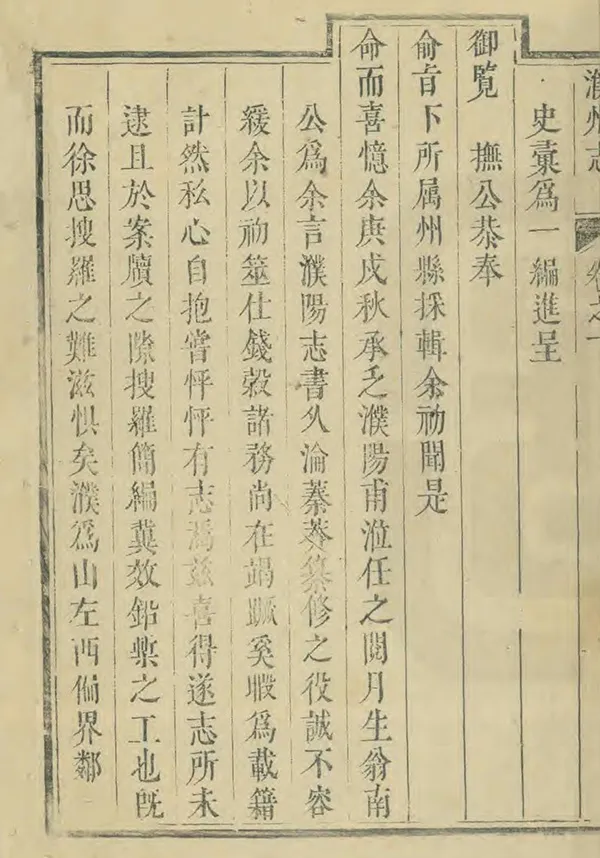 濮州志 卷之一
史彙為一編進呈
御覽 撫公恭奉
俞旨下所属州縣採輯余初聞是
命而喜憶余庚戌秋承乏濮陽甫涖任之閱月生翁南
公為余言濮陽志書久淪蓁莽纂修之役誠不容
緩余以初筮仕錢穀諸務尚在竭蹶奚暇為載籍
計然私心自抱嘗怦怦有志焉茲喜得遂志所未
逮且於案牘之隙搜羅簡編冀效鉛槧之工也既
而徐思搜羅之難滋惧矣濮為山左西偏界鄰